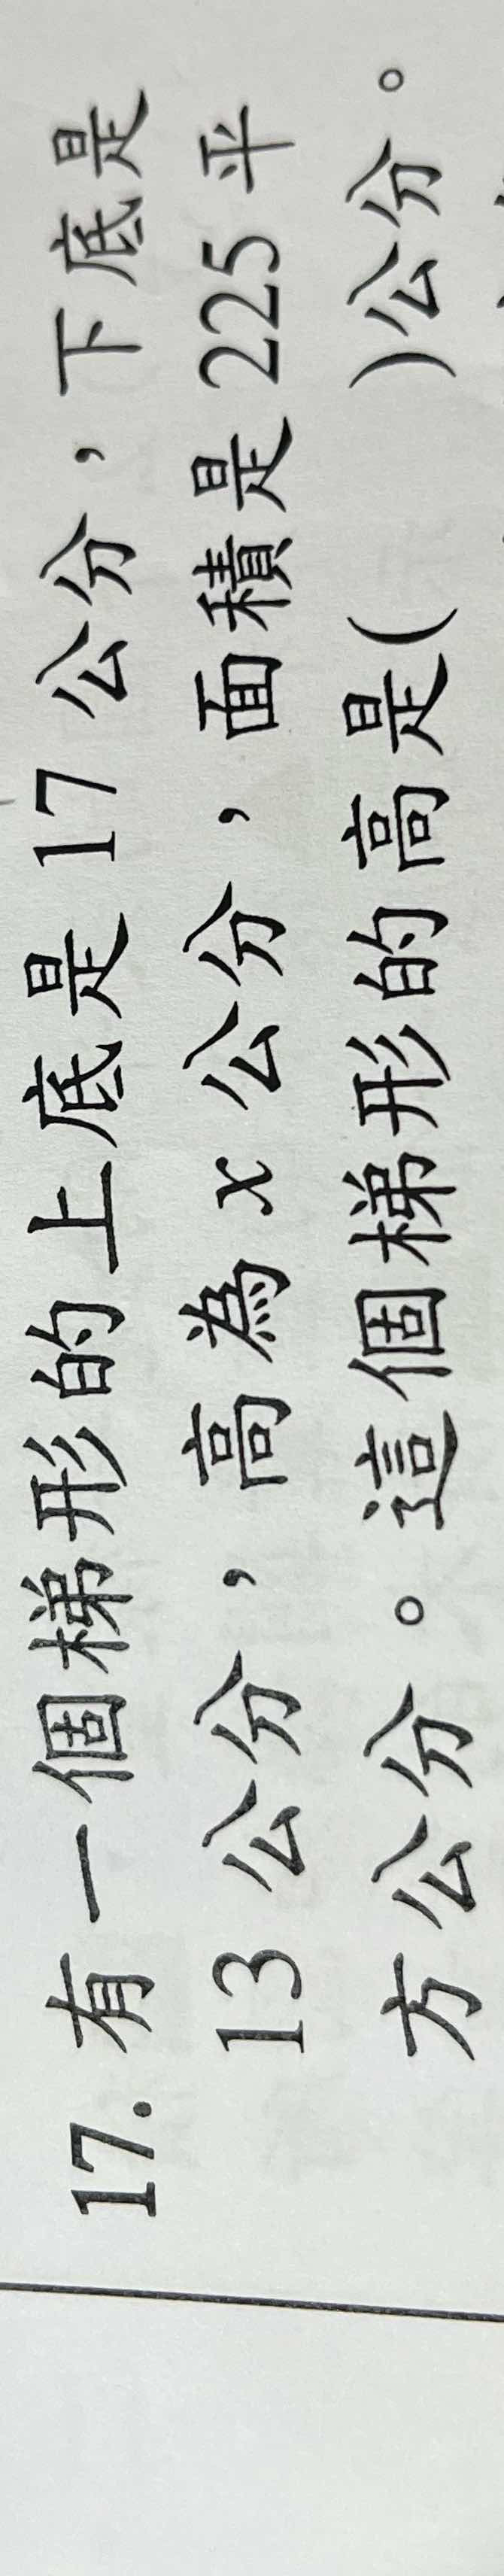 17. 有一個梯形的上底是 17 公分，下底是
13 公分，高為 x 公分，面積是 225 平
方公分。這個梯形的高是(　　)公分。